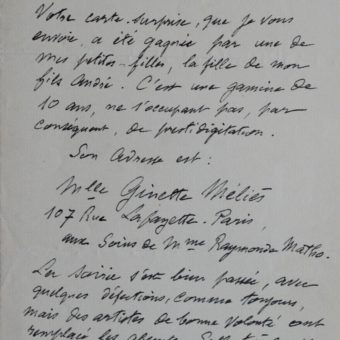 Votre carte-surprise, que je vous
envoie, a été gagnée par une de
mes petites-filles, la fille de mon
fils André. C'est une gamine de
10 ans, ne s'occupant pas, par
conséquent, de prestidigitation.
Son adresse est:
Mlle Ginette Méliès
107 Rue Lafayette. Paris,
aux Soins de Mme Raymonde Matho.
La soirée s'est bien passée, avec
quelques défections, comme toujours,
mais des artistes de bonne volonté ont
remplacé les